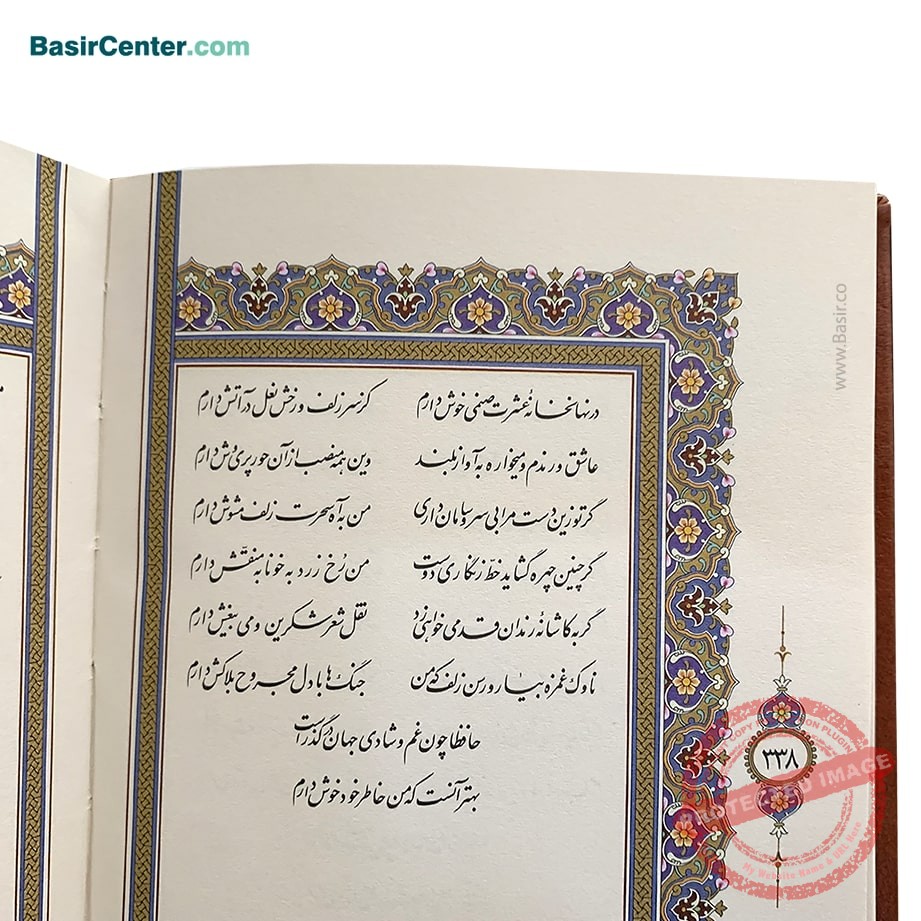 BasirCenter.com
www.Basir.co
در نهانخانهٔ عشرت صنمی خوش دارم کز سر زلف و رخش نعل در آتش دارم
عاشق و رندم و میخواره به آواز بلند وین همه منصب از آن حور پری وش دارم
گر تو زین دست مرا بی سر و سامان داری من به آه سحرت زلف مشوش دارم
گر چنین چهره گشاید خطّ زنگاری دوست من رُخ زرد به خونابه منقّش دارم
گر به کاشانهٔ رندان قدمی خواهی زد نقل شعر شکرین و می بیغش دارم
ناوک غمزه بیار و رسن زلف که من جنگ‌ها با دل مجروح بلاکش دارم
حافظا چون غم و شادی جهان در گذر است
بهتر آنست که من خاطر خود خوش دارم
۳۳۸
PROTECTED IMAGE
My Website Name & URL Here